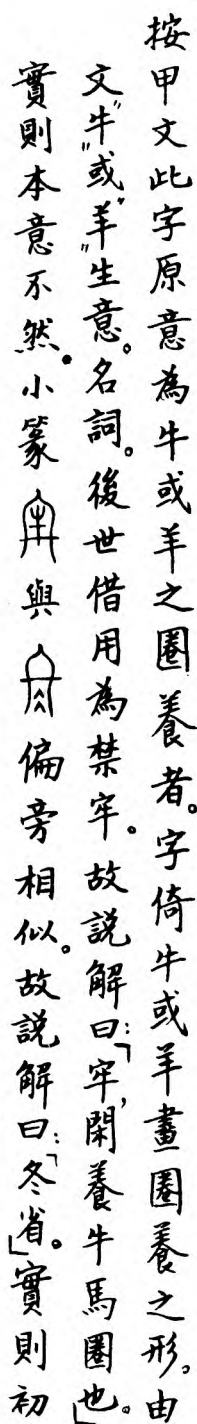 按甲文此字原意為牛或羊之圈養者。字倚牛或羊畫圈養之形。由
文"牛"或"羊"生意。名詞。後世借用為禁牢。故說解曰：「牢，閑養牛馬圈也」。
實則本意不然。小篆與偏旁相似。故說解曰：「冬省」。實則初